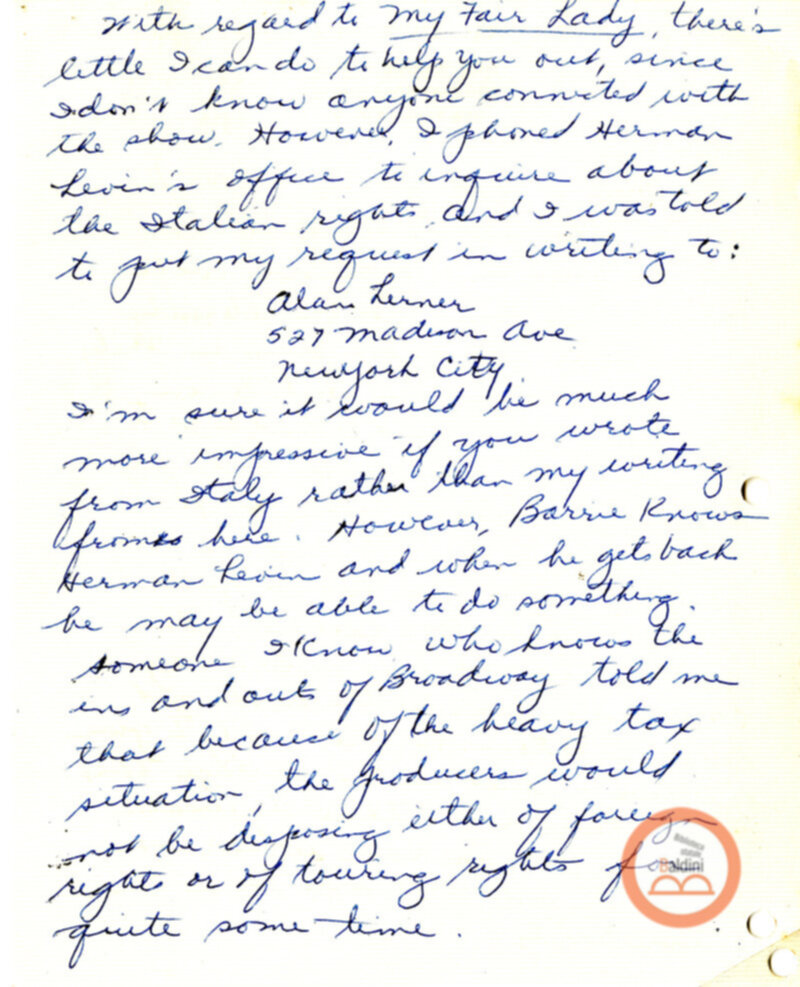 With regard to My Fair Lady, there's
little I can do to help you out, since
I don't know anyone connected with
the show. However, I phoned Herman
Levin's office to inquire about
the Italian rights, and I was told
to put my request in writing to:
Alan Lerner
527 Madison Ave
New York City
I'm sure it would be much
more impressive if you wrote
from Italy rather than my writing
from here. However, Barrie knows
Herman Levin and when he gets back
he may be able to do something.
Someone I know who knows the
ins and outs of Broadway told me
that because of the heavy tax
situation, the producers would
not be disposing either of foreign
rights or of touring rights for
quite some time.
Biblioteca
statale
Baldini